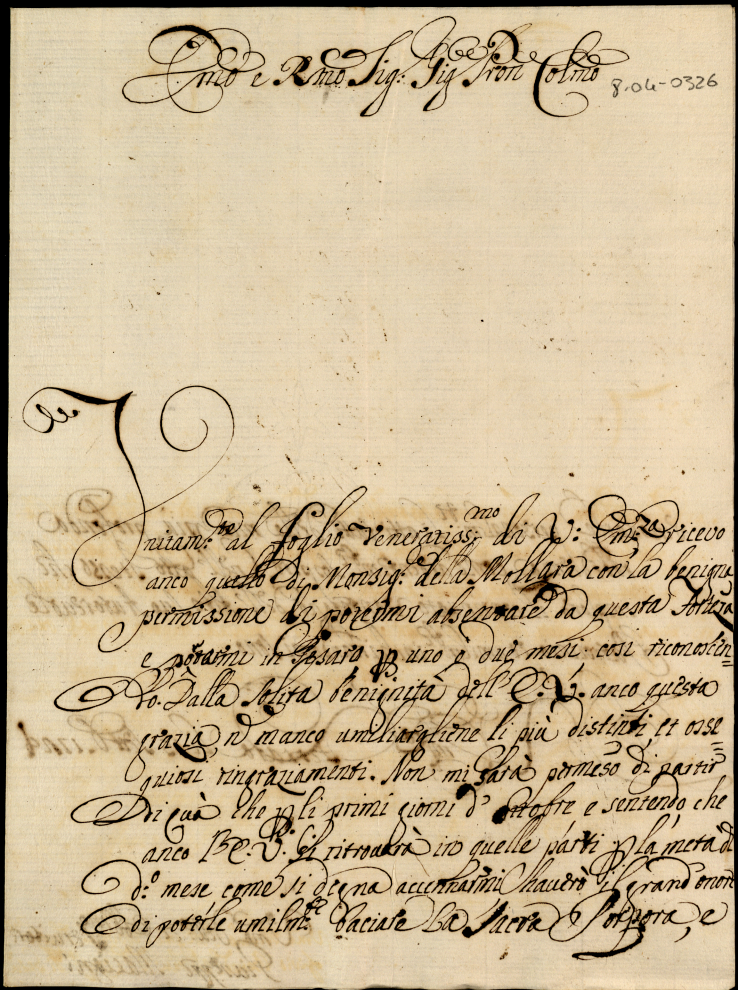 Emo e Rmo Sig: Sig Pron Colmo
8.04-0326
Unitam.te al Foglio Veneratiss:mo di V: Em.za ricevo
anco quello di Monsig.r della Mollara con la benigna
permissione di potermi absentare da questa Fortezza
e portarmi in Pesaro p uno ò due mesi. così riconoscen=
do Dalla solita benignità dell'E.V. anco questa
grazia, nò manco umiliargliene li più distinti et osse=
quiosi ringraziamenti. Non mi sarà permesso di partir
Di quà che p li primi giorni d' Ottobre e sentendo che
anco l'E.V. si ritroverà in quelle parti p la metà di
d.o mese come si degna accennarmi haverò il grand'onore
di poterle umilm.te baciare la Sacra Porpora, e